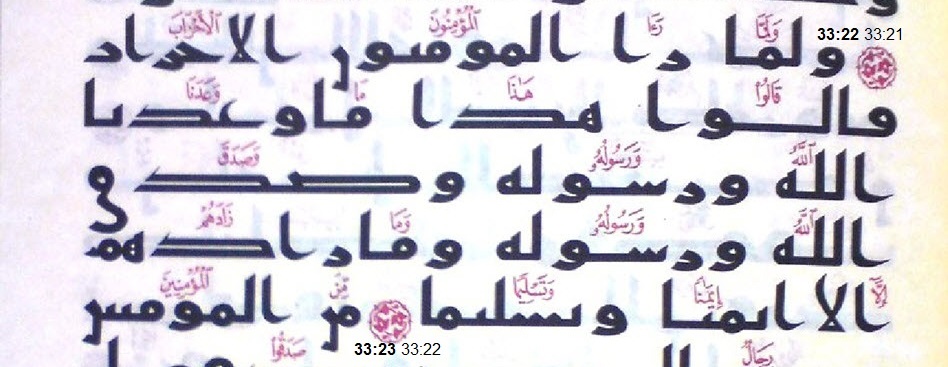 وَلَمَّا رَءَا ٱلْمُؤْمِنُونَ ٱلْأَحْزَابَ
33:22 33:21
ولما را المومنون الاحزاب
قَالُوا۟ هَـٰذَا مَا وَعَدَنَا
قالوا هذا ما وعدنا
ٱللَّهُ وَرَسُولُهُۥ وَصَدَقَ
الله ورسوله وصدق
ٱللَّهُ وَرَسُولُهُۥ وَمَا زَادَهُمْ
الله ورسوله وما زادهم
إِلَّآ إِيمَـٰنًا وَتَسْلِيمًا مِّنَ ٱلْمُؤْمِنِينَ
الا ايمنا وتسليما من المومنين
33:23 33:22
رِجَالٌ صَدَقُوا۟